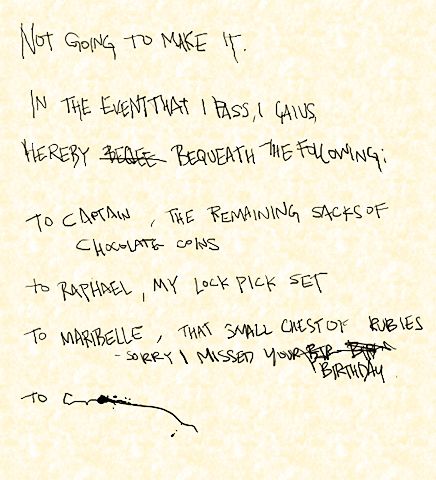 NOT GOING TO MAKE IT.
IN THE EVENT THAT I PASS, I GAIUS,
HEREBY BEQEE BEQUEATH THE FOLLOWING:
TO CAPTAIN, THE REMAINING SACKS OF
CHOCOLATE COINS
TO RAPHAEL, MY LOCK PICK SET
TO MARIBELLE, THAT SMALL CHEST OF RUBIES
- SORRY I MISSED YOUR BIR
BIRTHDAY.
TO C